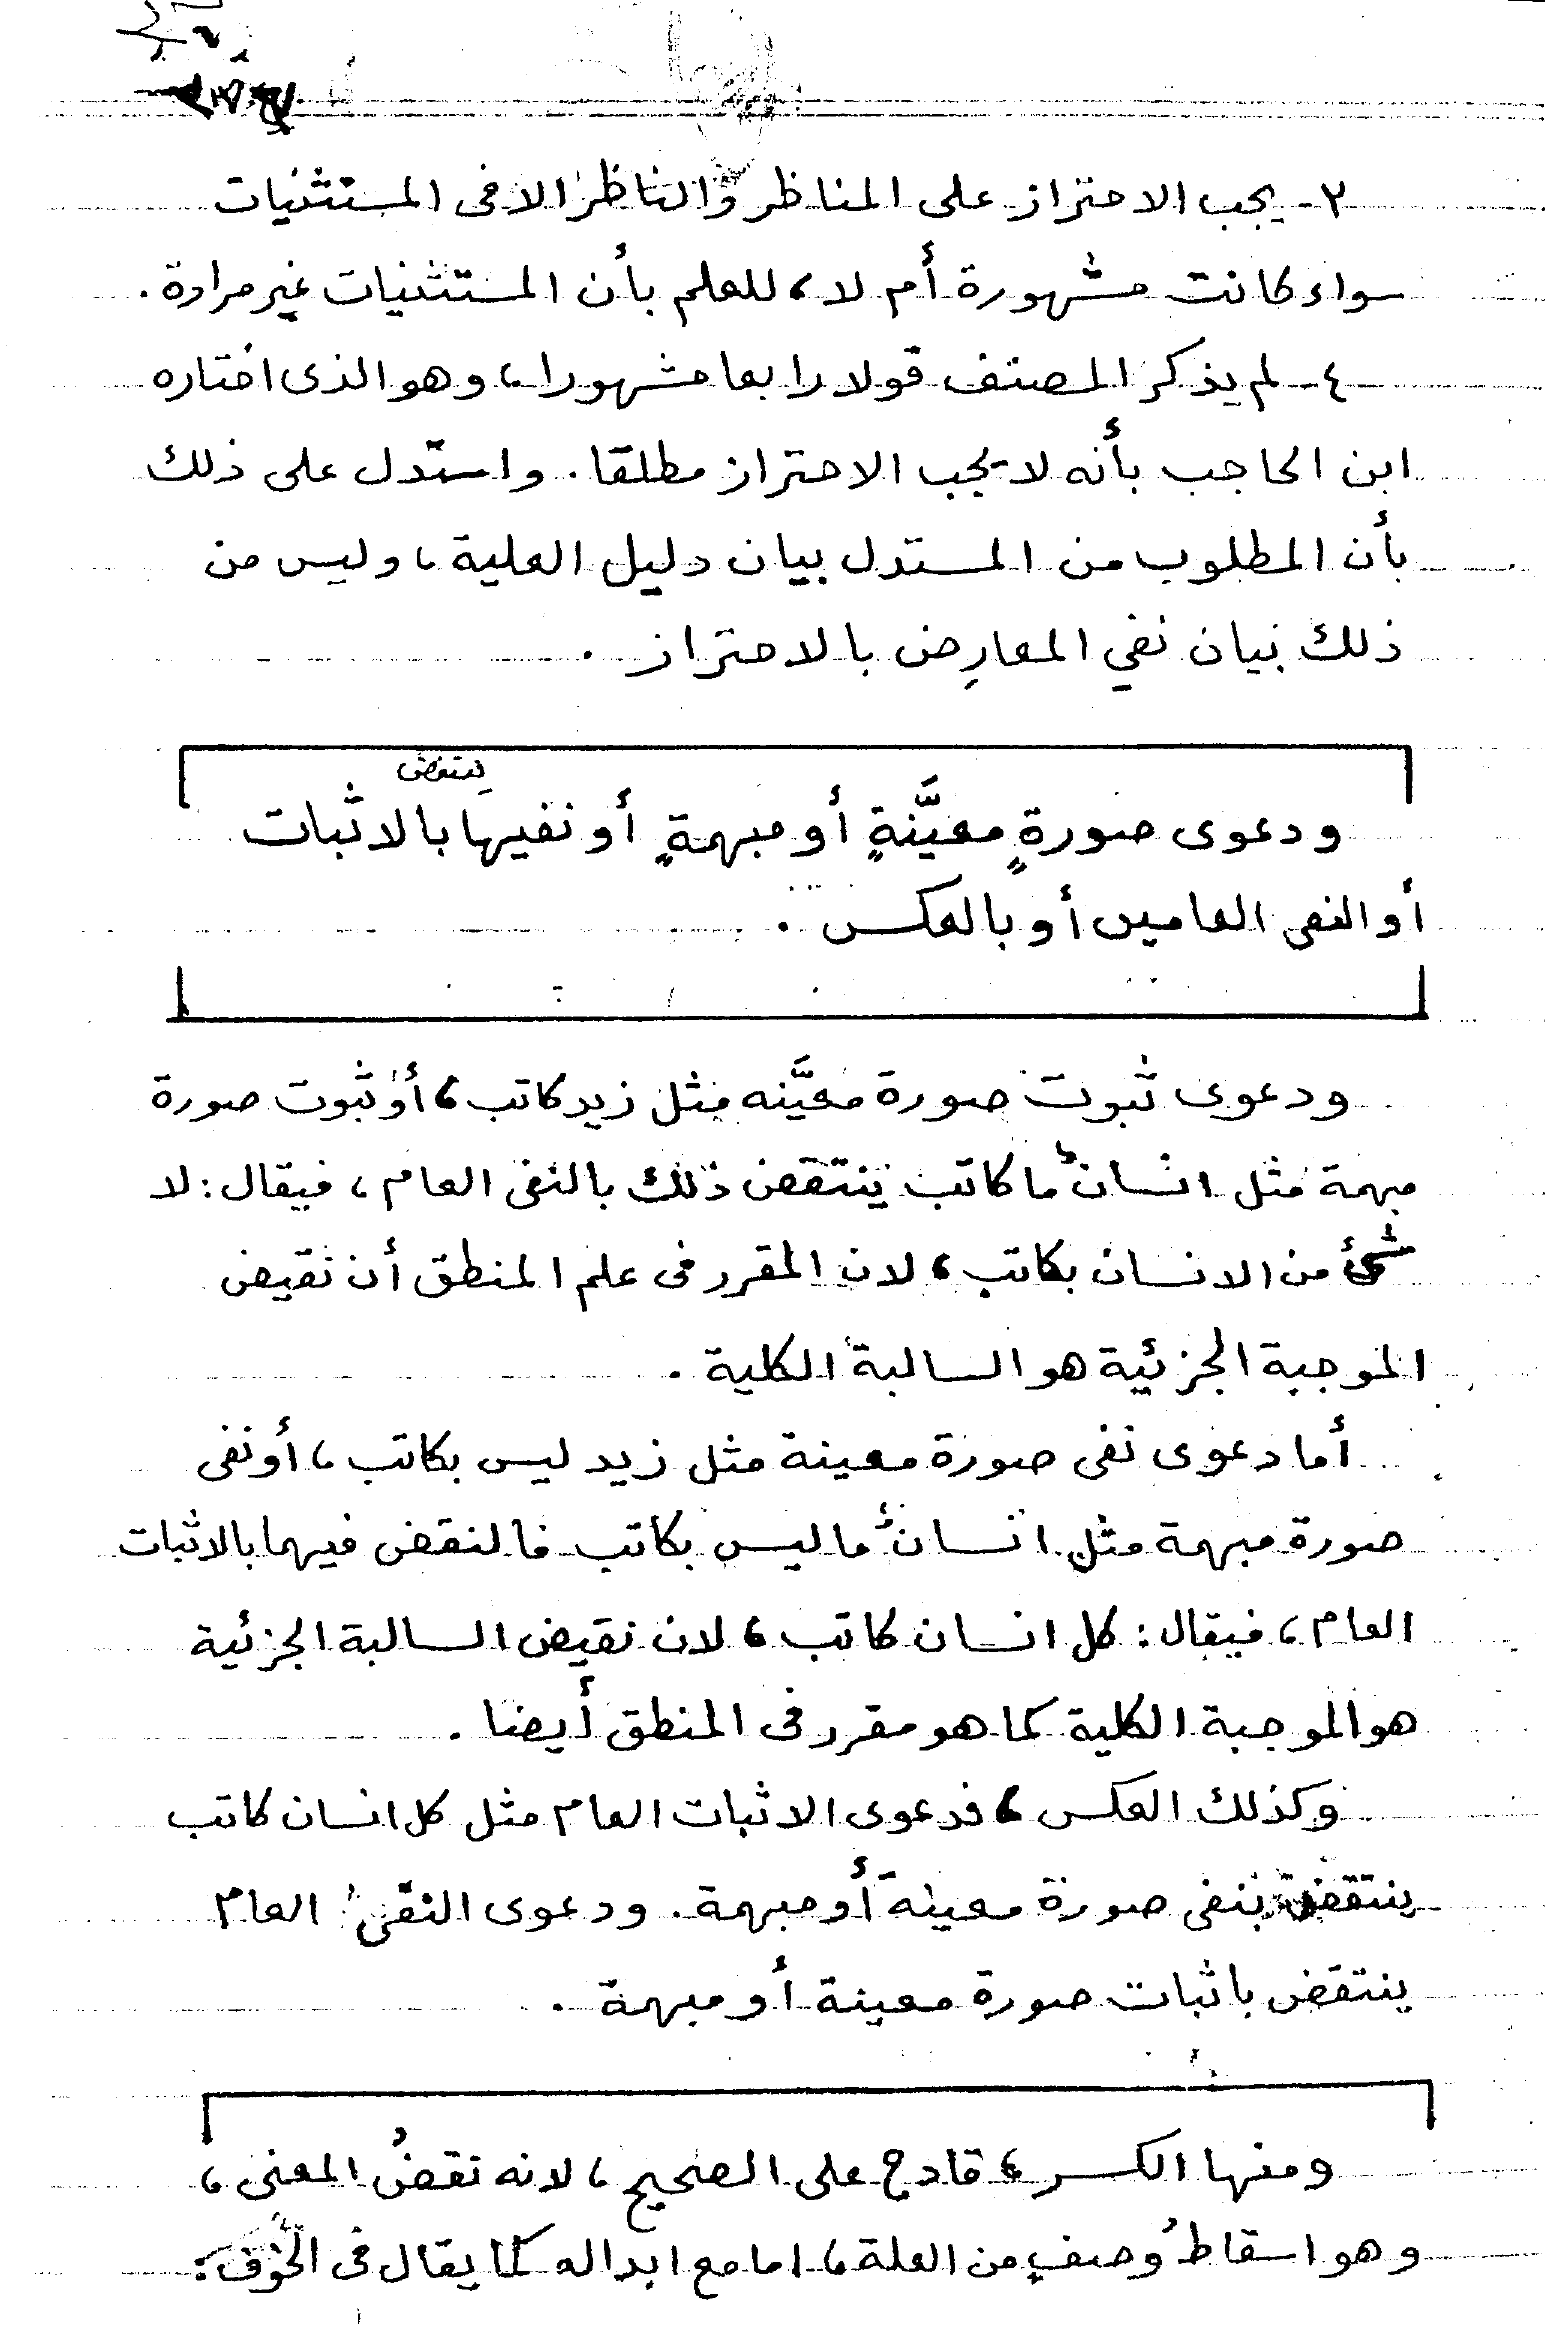 ٣- يجب الاحتراز على المناظر والناظر الا فى المستثنيات
سواء كانت مشهورة أم لا، للعلم بأن المستثنيات غير مرادة .
٤- لم يذكر المصنف قولا رابعا مشهورا، وهو الذى اختاره
ابن الحاجب بأنه لا يجب الاحتراز مطلقا . واستدل على ذلك
بأن المطلوب من المستدل بيان دليل العلية، وليس من
ذلك بيان نفي المعارِض بالاحتراز .
ينتقض
ودعوى صورةٍ معيَّنةٍ أو مبهمةٍ أو نفيها بالاثبات
أو النفى العامين أو بالعكس .
ودعوى ثبوت صورة معيَّنه مثل زيد كاتب، أو ثبوت صورة
مبهمة مثل انسانٌ ما كاتب ينتقض ذلك بالنفى العام، فيقال : لا
شئ من الانسان بكاتب، لان المقرر فى علم المنطق أن نقيض
الموجبة الجزئية هو السالبة الكلية .
أما دعوى نفى صورة معينة مثل زيد ليس بكاتب، أو نفى
صورة مبهمة مثل انسانٌ ما ليس بكاتب فالنقض فيهما بالاثبات
العام، فيقال : كل انسان كاتب، لان نقيض السالبة الجزئية
هو الموجبة الكلية كما هو مقرر فى المنطق أيضا .
وكذلك العكس، فدعوى الاثبات العام مثل كل انسان كاتب
ينتقض بنفى صورة معينة أو مبهمة . ودعوى النفى العام
ينتقض باثبات صورة معينة أو مبهمة .
ومنها الكسر، قادح على الصحيح، لانه نقضُ المعنى،
وهو اسقاطُ وصفٍ من العلة، اما مع ابداله كما يقال فى الخوف :